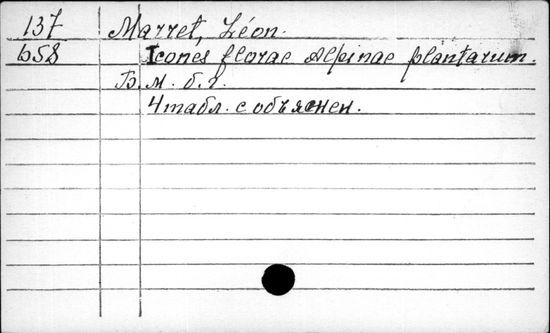 137 Marret, Léon.
658 Icones florae Alpinae plantarum.
Б. м. б. г.
4 табл. с объяснен.